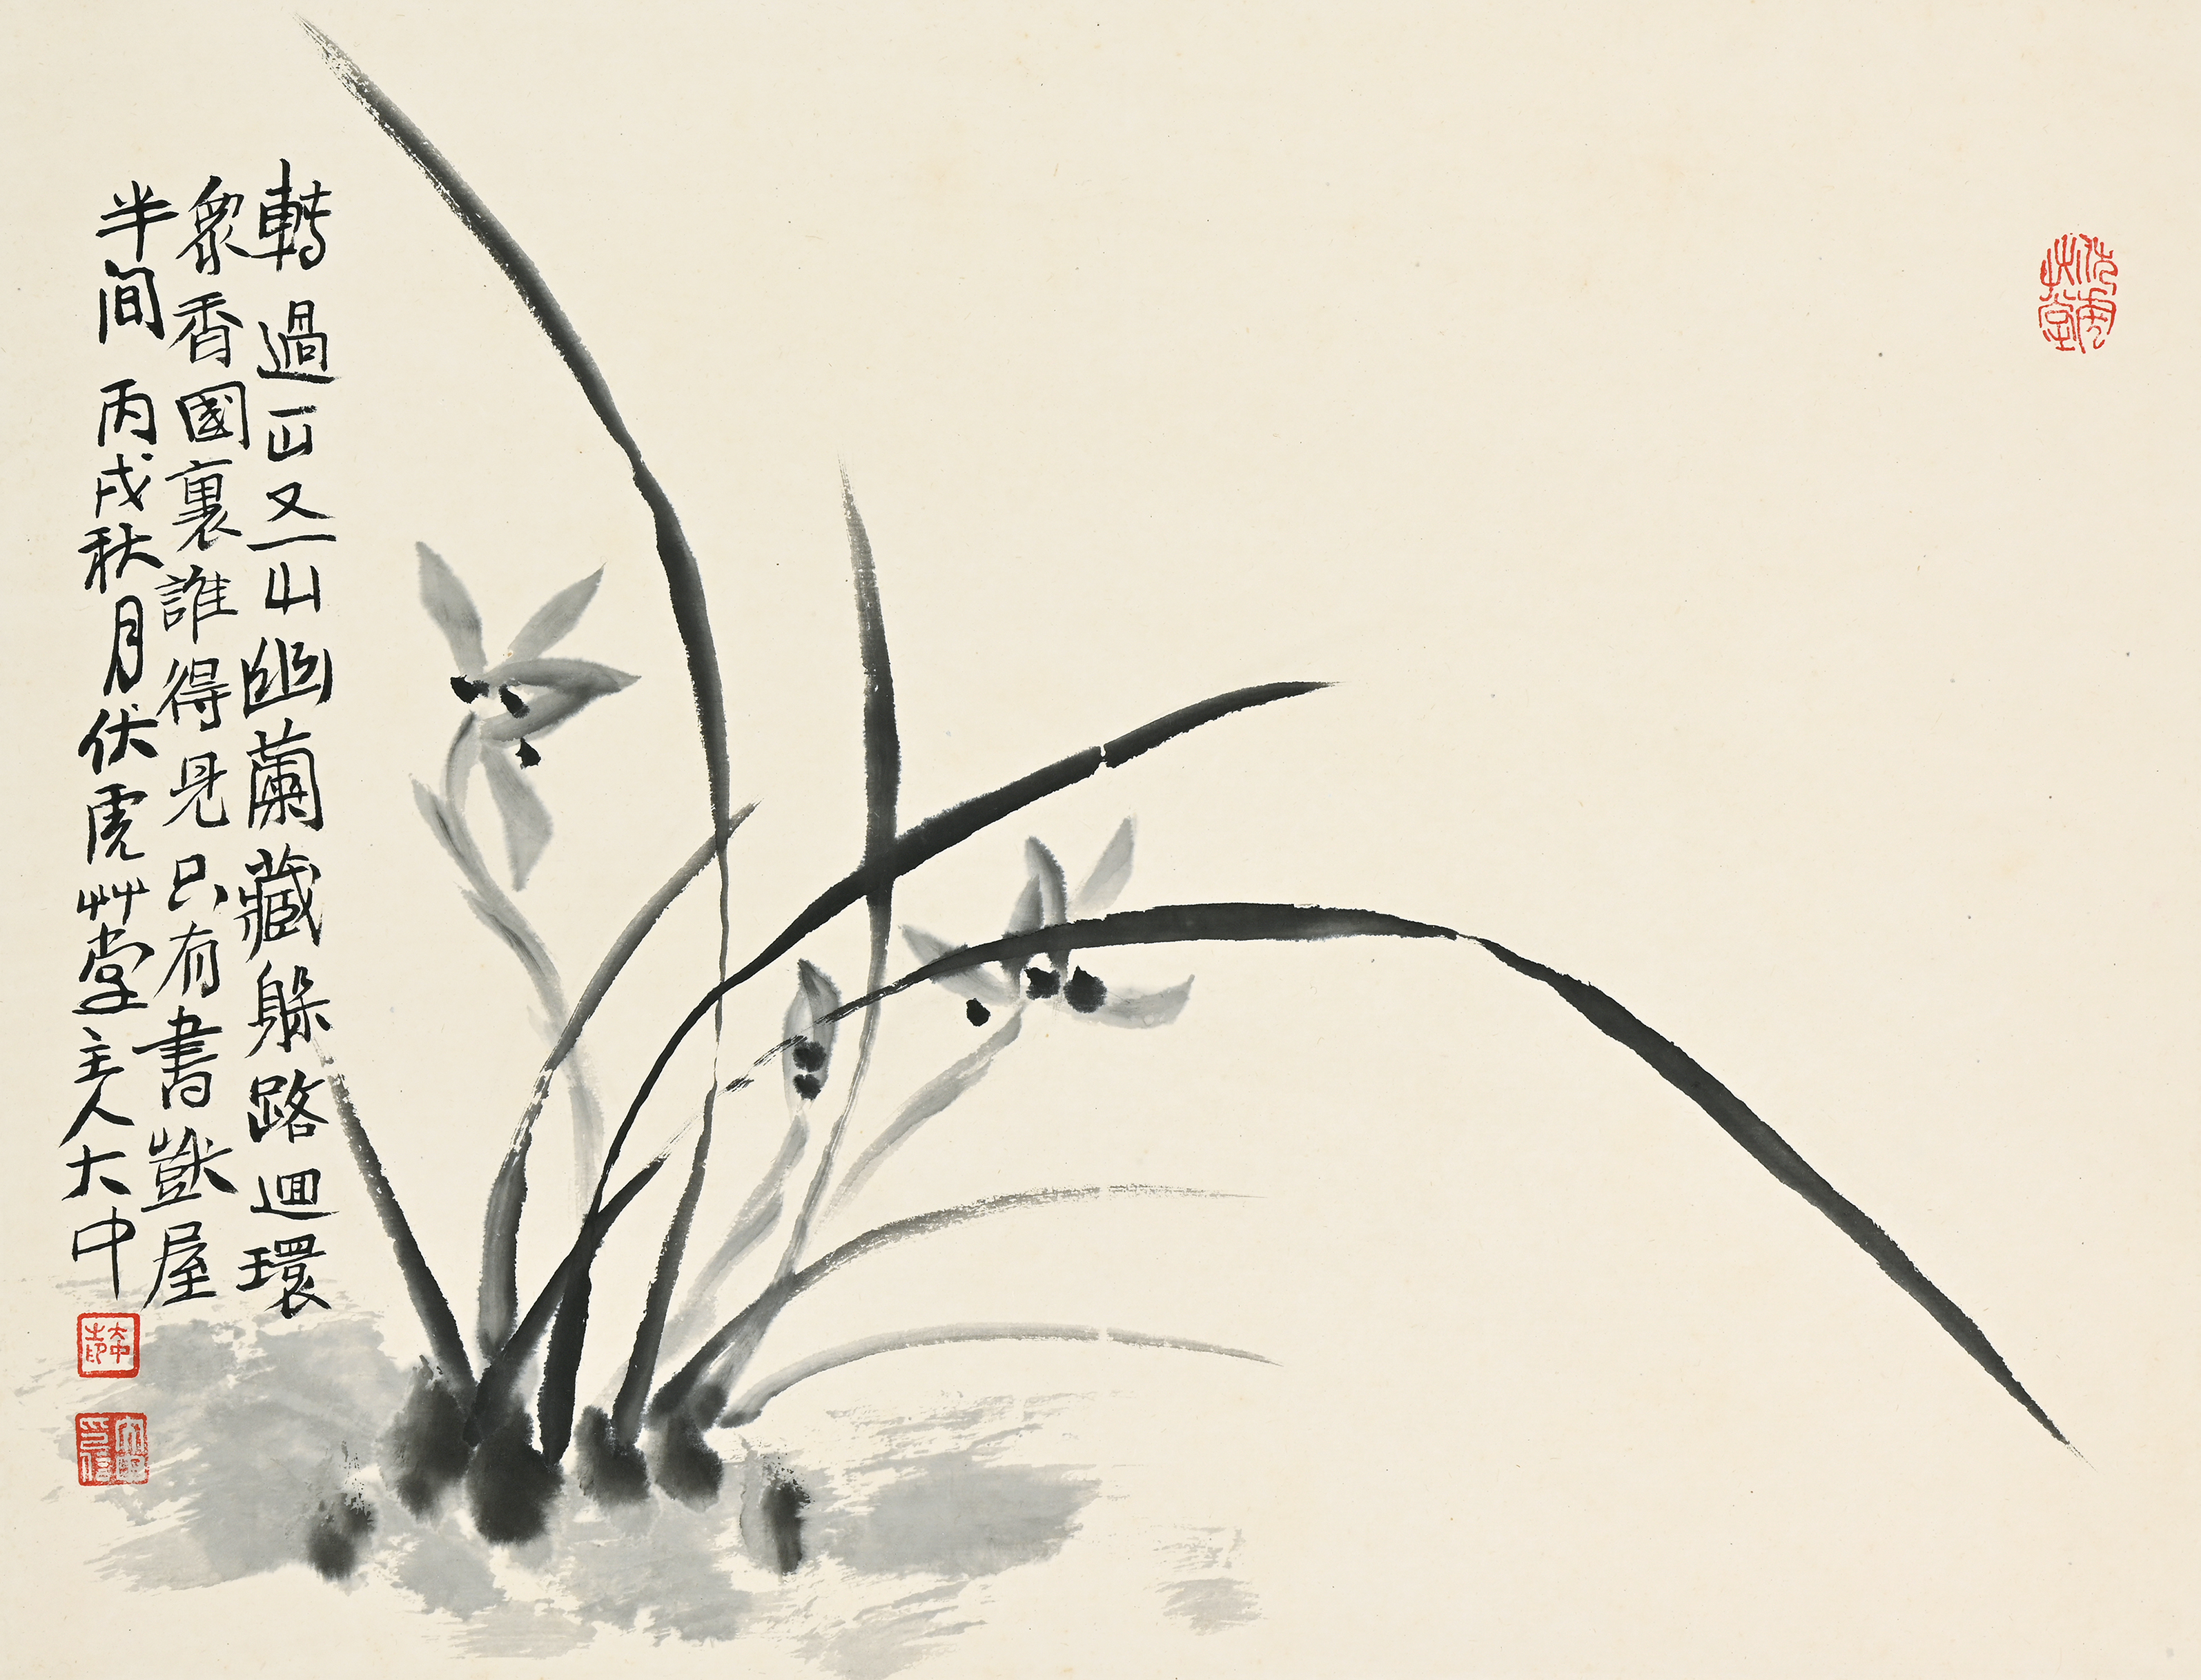 伏虎艸堂
轉過一山又一山幽蘭藏躲路迴環
眾香國裏誰得見只有書獃屋
半間 丙戌秋月伏虎艸堂主人大中